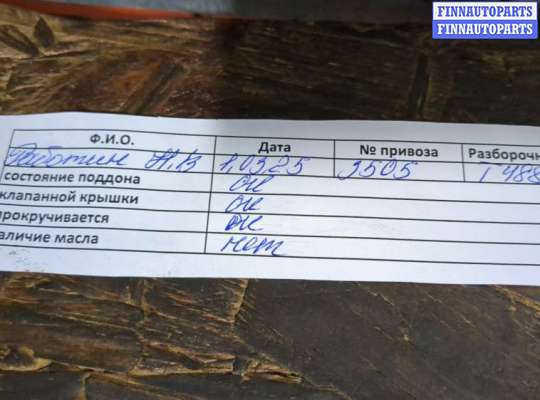 FINNAUTOPARTS
FINNAUTOPARTS
Ф.И.О. Дата № привоза Разборочн
Н.В 1,0325 3505 Г488
состояние поддона ок
клапанной крышки ок
прокручивается ок
аличие масла нет